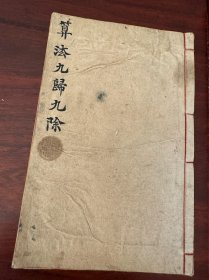 算法九歸九除